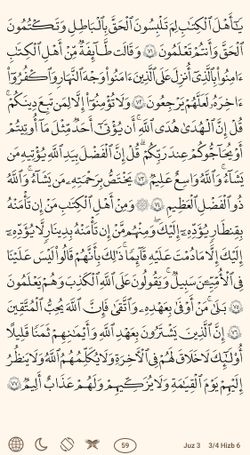 يَٰٓأَهْلَ ٱلْكِتَٰبِ لِمَ تَلْبِسُونَ ٱلْحَقَّ بِٱلْبَٰطِلِ وَتَكْتُمُونَ
ٱلْحَقَّ وَأَنتُمْ تَعْلَمُونَ ٧١ وَقَالَت طَّآئِفَةٌ مِّنْ أَهْلِ ٱلْكِتَٰبِ
ءَامِنُوا۟ بِٱلَّذِىٓ أُنزِلَ عَلَى ٱلَّذِينَ ءَامَنُوا۟ وَجْهَ ٱلنَّهَارِ وَٱكْفُرُوٓا۟
ءَاخِرَهُۥ لَعَلَّهُمْ يَرْجِعُونَ ٧٢ وَلَا تُؤْمِنُوٓا۟ إِلَّا لِمَن تَبِعَ دِينَكُمْ
قُلْ إِنَّ ٱلْهُدَىٰ هُدَى ٱللَّهِ أَن يُؤْتَىٰٓ أَحَدٌ مِّثْلَ مَآ أُوتِيتُمْ
أَوْ يُحَآجُّوكُمْ عِندَ رَبِّكُمْ ۗ قُلْ إِنَّ ٱلْفَضْلَ بِيَدِ ٱللَّهِ يُؤْتِيهِ مَن
يَشَآءُ ۗ وَٱللَّهُ وَٰسِعٌ عَلِيمٌ ٧٣ يَخْتَصُّ بِرَحْمَتِهِۦ مَن يَشَآءُ ۗ وَٱللَّهُ
ذُو ٱلْفَضْلِ ٱلْعَظِيمِ ٧٤ ۞ وَمِنْ أَهْلِ ٱلْكِتَٰبِ مَنْ إِن تَأْمَنْهُ
بِقِنطَارٍ يُؤَدِّهِۦٓ إِلَيْكَ وَمِنْهُم مَّنْ إِن تَأْمَنْهُ بِدِينَارٍ لَّا يُؤَدِّهِۦٓ
إِلَيْكَ إِلَّا مَا دُمْتَ عَلَيْهِ قَآئِمًا ۗ ذَٰلِكَ بِأَنَّهُمْ قَالُوا۟ لَيْسَ عَلَيْنَا
فِى ٱلْأُمِّيِّـۧنَ سَبِيلٌ وَيَقُولُونَ عَلَى ٱللَّهِ ٱلْكَذِبَ وَهُمْ يَعْلَمُونَ
٧٥ بَلَىٰ مَنْ أَوْفَىٰ بِعَهْدِهِۦ وَٱتَّقَىٰ فَإِنَّ ٱللَّهَ يُحِبُّ ٱلْمُتَّقِينَ
٧٦ إِنَّ ٱلَّذِينَ يَشْتَرُونَ بِعَهْدِ ٱللَّهِ وَأَيْمَٰنِهِمْ ثَمَنًا قَلِيلًا
أُو۟لَٰٓئِكَ لَا خَلَٰقَ لَهُمْ فِى ٱلْءَاخِرَةِ وَلَا يُكَلِّمُهُمُ ٱللَّهُ وَلَا يَنظُرُ
إِلَيْهِمْ يَوْمَ ٱلْقِيَٰمَةِ وَلَا يُزَكِّيهِمْ وَلَهُمْ عَذَابٌ أَلِيمٌ ٧٧
59 Juz 3 3/4 Hizb 6